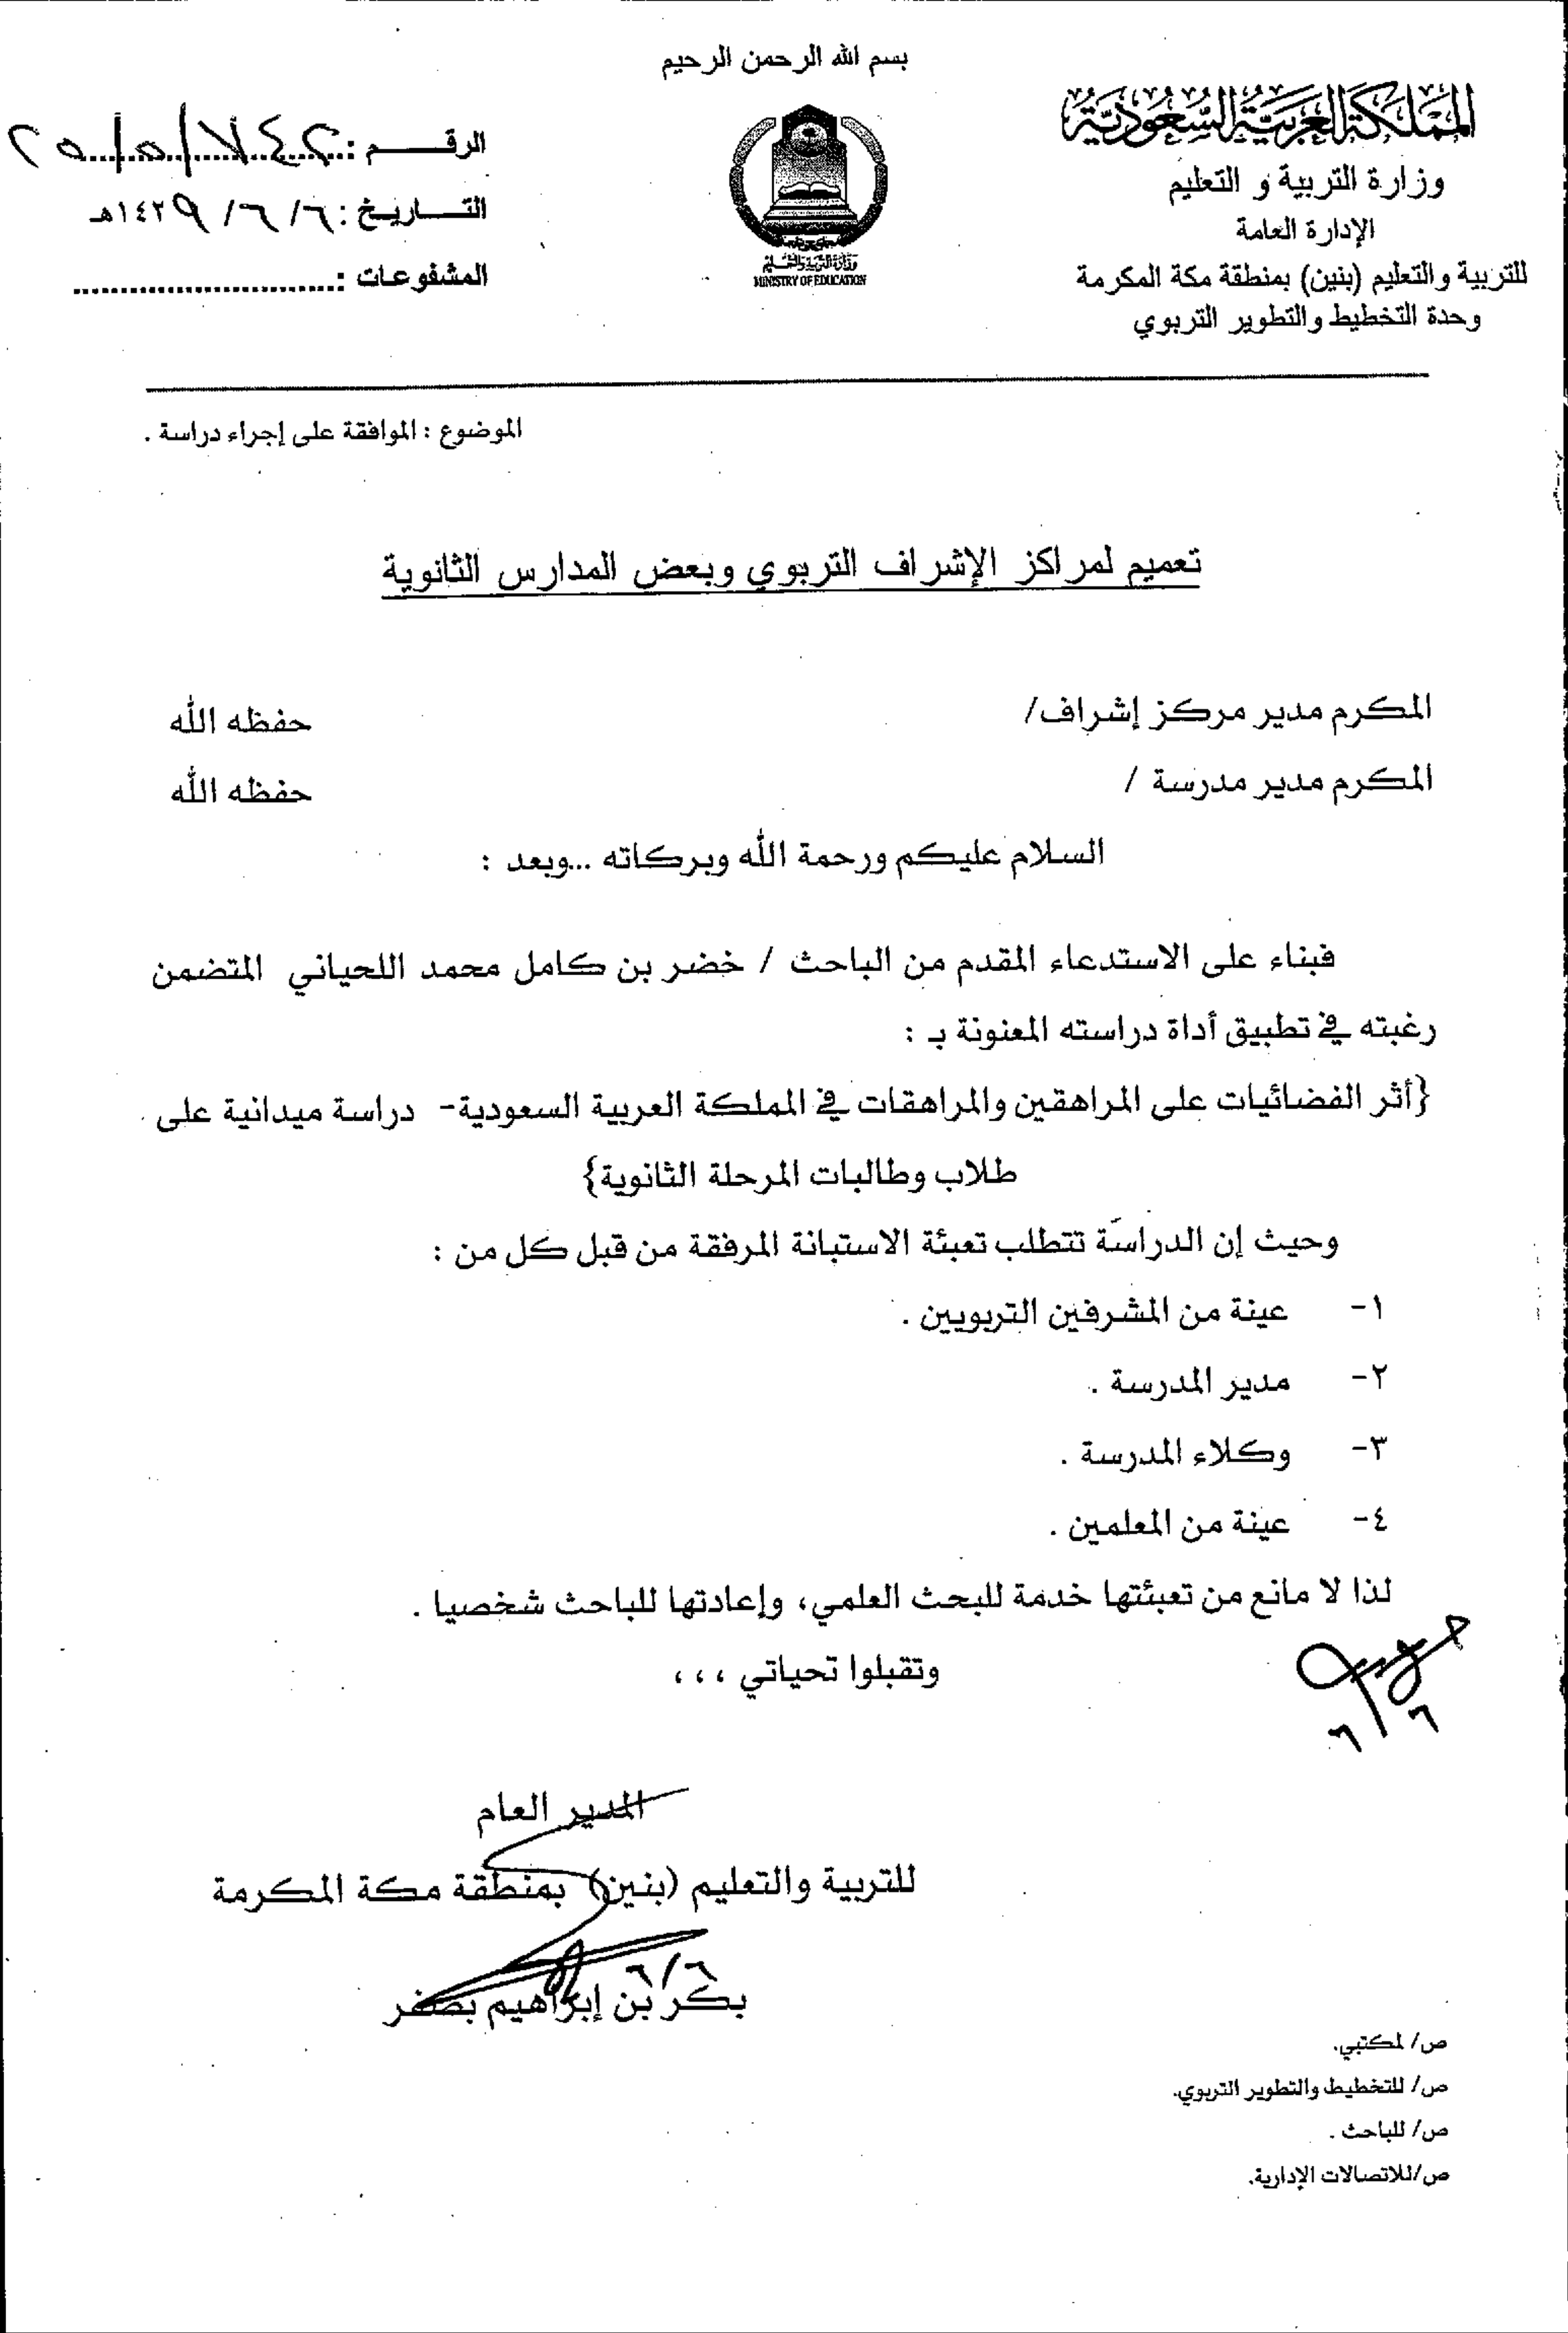 بسم الله الرحمن الرحيم
المملكة العربية السعودية
وزارة التربية و التعليم
الإدارة العامة
للتربية والتعليم (بنين) بمنطقة مكة المكرمة
وحدة التخطيط والتطوير التربوي
وزارة التربية والتعليم
MINISTRY OF EDUCATION
الرقــــــم :
التـــاريـخ : ٦ / ٦ / ١٤٢٩هـ
المشفوعات : ............................
الموضوع : الموافقة على إجراء دراسة .
تعميم لمراكز الإشراف التربوي وبعض المدارس الثانوية
المكرم مدير مركز إشراف/ حفظه الله
المكرم مدير مدرسة / حفظه الله
السلام عليكم ورحمة الله وبركاته ...وبعد :
فبناء على الاستدعاء المقدم من الباحث / خضر بن كامل محمد اللحياني المتضمن
رغبته في تطبيق أداة دراسته المعنونة بـ :
{أثر الفضائيات على المراهقين والمراهقات في المملكة العربية السعودية- دراسة ميدانية على
طلاب وطالبات المرحلة الثانوية}
وحيث إن الدراسة تتطلب تعبئة الاستبانة المرفقة من قبل كل من :
١- عينة من المشرفين التربويين .
٢- مدير المدرسة .
٣- وكلاء المدرسة .
٤- عينة من المعلمين .
لذا لا مانع من تعبئتها خدمة للبحث العلمي، وإعادتها للباحث شخصيا .
وتقبلوا تحياتي ،،،
٦/٦
المدير العام
للتربية والتعليم (بنين) بمنطقة مكة المكرمة
٦/٦
بكر بن إبراهيم بصفر
ص/ لمكتبي.
ص/ للتخطيط والتطوير التربوي.
ص/ للباحث .
ص/للاتصالات الإدارية.